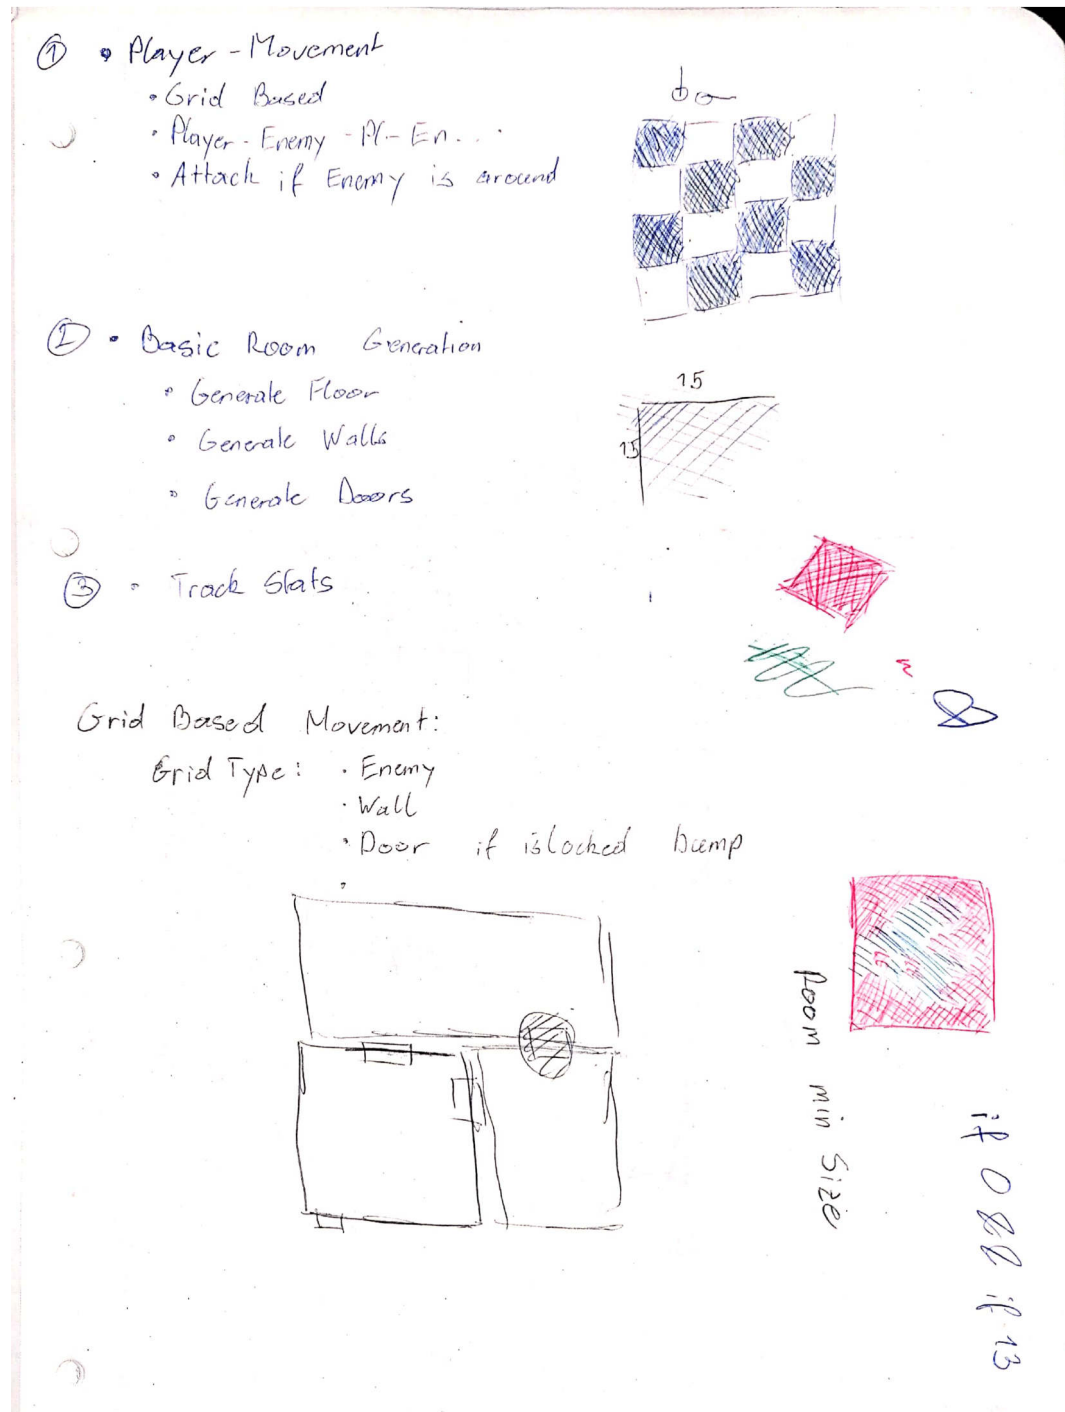 ① • Player - Movement
• Grid Based
• Player - Enemy - Pl - En...
• Attack if Enemy is around
② • Basic Room Generation
• Generate Floor
• Generate Walls
• Generate Doors
15
15
③ • Track Stats
Grid Based Movement:
Grid Type: • Enemy
• Wall
• Door if islocked bump
Room min Size
if 0 && if 13